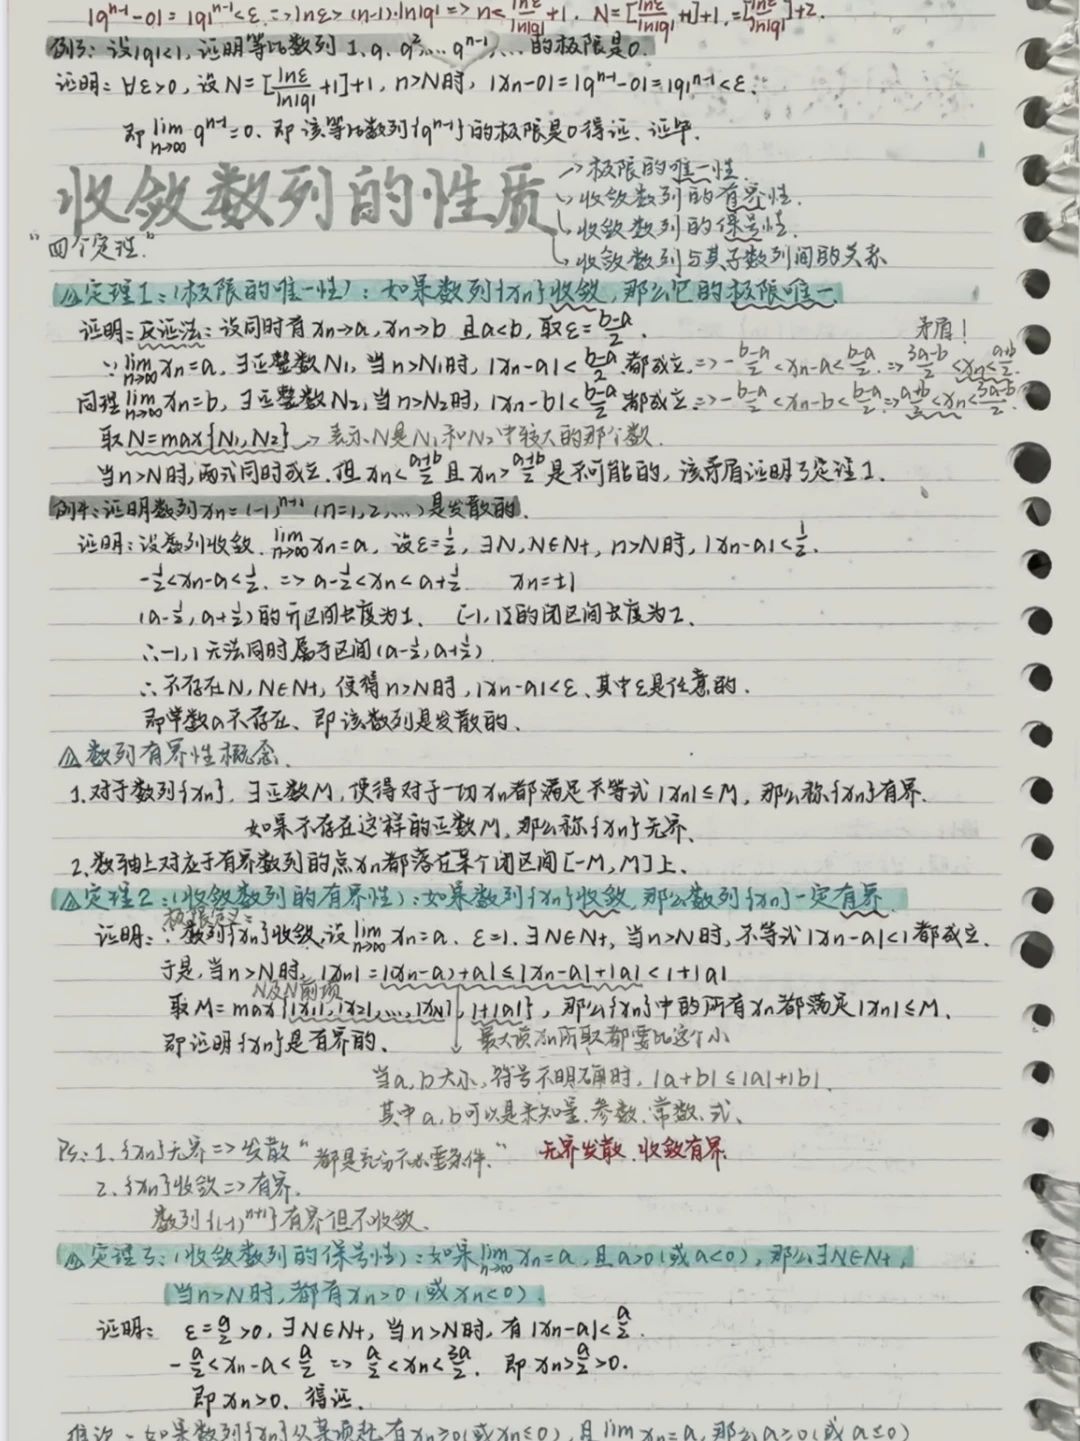 |q^{n-1}-0|=|q|^{n-1}<ε. => lnε>(n-1)·ln|q| => n<\frac{lnε}{ln|q|}+1. N=[\frac{lnε}{ln|q|}+1]+1,=[\frac{lnε}{ln|q|}]+2.
例3: 设|q|<1, 证明等比数列 1, q, q²,… q^{n-1}, … 的极限是0.
证明: ∀ε>0, 设N=[\frac{lnε}{ln|q|}+1]+1, n>N时, |xn-0|=|q^{n-1}-0|=|q|^{n-1}<ε.
即 \lim_{n→∞} q^{n-1}=0. 即该等比数列{q^{n-1}}的极限是0得证. 证毕.
收敛数列的性质
→极限的唯一性.
→收敛数列的有界性.
→收敛数列的保号性.
→收敛数列与其子数列间的关系
"四个定理"
△定理1:(极限的唯一性): 如果数列{xn}收敛, 那么它的极限唯一
证明: 反证法: 设同时有xn→a, xn→b. 且a<b, 取ε=\frac{b-a}{2}.
矛盾!
∵\lim_{n→∞} xn=a, ∃正整数N1, 当n>N1时, |xn-a|<\frac{b-a}{2}都成立. => -\frac{b-a}{2}<xn-a<\frac{b-a}{2}. => \frac{3a-b}{2}<xn<\frac{a+b}{2}.
同理\lim_{n→∞} xn=b, ∃正整数N2, 当n>N2时, |xn-b|<\frac{b-a}{2}都成立. => -\frac{b-a}{2}<xn-b<\frac{b-a}{2} => \frac{a+b}{2}<xn<\frac{3a-b}{2}.
取N=max{N1,N2} → 表示N是N1和N2中较大的那个数.
当n>N时, 两式同时成立. 但xn<\frac{a+b}{2}且xn>\frac{a+b}{2}是不可能的, 该矛盾证明了定理1.
例4: 证明数列xn=(-1)^{n+1} (n=1,2,…)是发散的.
证明: 设数列收敛. \lim_{n→∞} xn=a, 设ε=\frac{1}{2}, ∃N, N∈N+, n>N时, |xn-a|<\frac{1}{2}.
-\frac{1}{2}<xn-a<\frac{1}{2}. => a-\frac{1}{2}<xn<a+\frac{1}{2} xn=±1
(a-\frac{1}{2}, a+\frac{1}{2})的开区间长度为1. [-1,1]的闭区间长度为2.
∴-1,1无法同时属于区间(a-\frac{1}{2},a+\frac{1}{2})
∴不存在N, N∈N+, 使得n>N时, |xn-a|<ε, 其中ε是任意的.
即常数a不存在、即该数列是发散的.
△数列有界性概念.
1.对于数列{xn}, ∃正数M, 使得对于一切xn都满足不等式|xn|≤M, 那么称{xn}有界.
如果不存在这样的正数M, 那么称{xn}无界.
2.数轴上对应于有界数列的点xn都落在某个闭区间[-M,M]上.
△定理2:(收敛数列的有界性): 如果数列{xn}收敛, 那么数列{xn}一定有界
极限定义:
证明: ∵数列{xn}收敛, 设\lim_{n→∞} xn=a. ε=1. ∃N∈N+, 当n>N时, 不等式|xn-a|<1都成立.
于是, 当n>N时, |xn|=|(xn-a)+a|≤|xn-a|+|a|<1+|a|
N及N前项
取M=max{|x1|,|x2|,…,|xN|, 1+|a|}, 那么{xn}中的所有xn都满足|xn|≤M.
即证明{xn}是有界的.
最大读xn所取都要比这个小
当a,b大小, 符号不明确时, |a+b|≤|a|+|b|.
其中a,b可以是未知量、参数、常数、式.
Ps: 1、{xn}无界=>发散 "都是充分不必要条件." 无界发散. 收敛有界.
2、{xn}收敛=>有界.
数列{(-1)^{n+1}}有界但不收敛.
△定理3:(收敛数列的保号性): 如果\lim_{n→∞} xn=a, 且a>0(或a<0), 那么∃N∈N+,
当n>N时, 都有xn>0(或xn<0).
证明: ε=\frac{a}{2}>0, ∃N∈N+, 当n>N时, 有|xn-a|<\frac{a}{2}.
-\frac{a}{2}<xn-a<\frac{a}{2} => \frac{a}{2}<xn<\frac{3a}{2}. 即xn>\frac{a}{2}>0.
即xn>0. 得证.
推论: 如果数列{xn}从某项起有xn≥0(或xn≤0), 且lim xn=a, 那么a≥0(或a≤0)